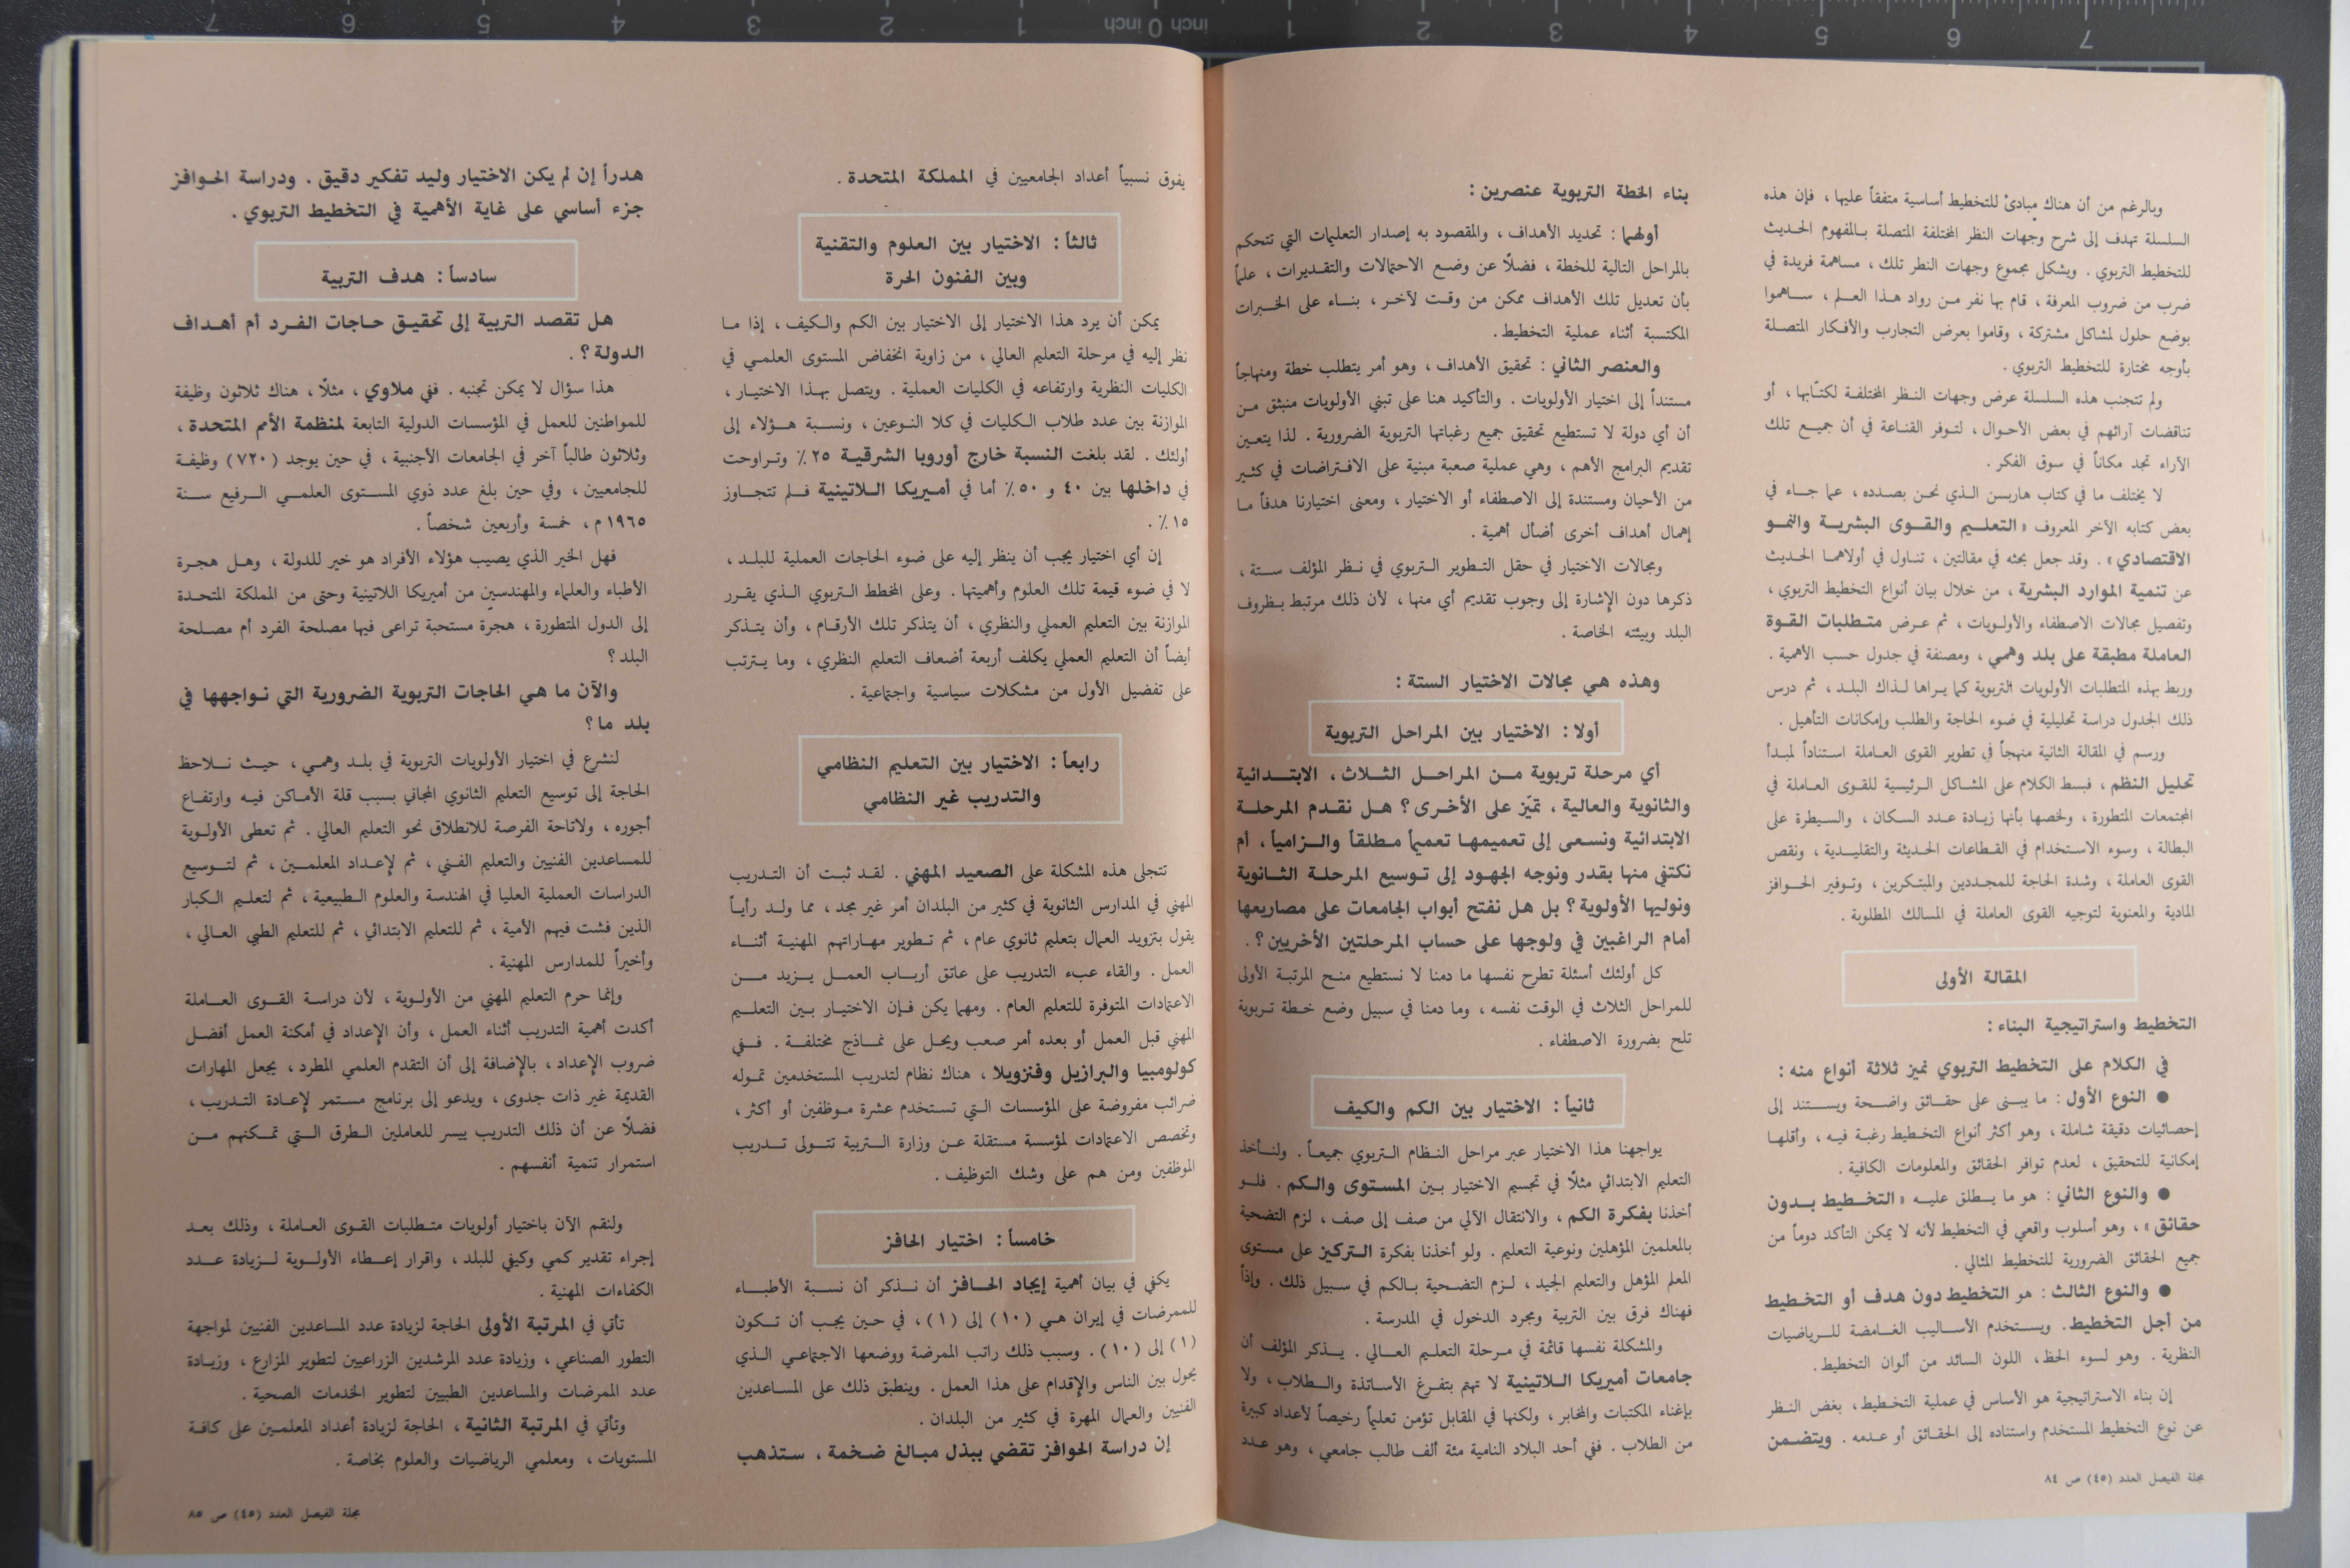 وبالرغم من أن هناك مبادئ للتخطيط أساسية متفقاً عليها ، فإن هذه
السلسلة تهدف إلى شرح وجهات النظر المختلفة المتصلة بالمفهوم الحديث
للتخطيط التربوي . ويشكل مجموع وجهات النظر تلك ، مساهمة فريدة في
ضرب من ضروب المعرفة ، قام بها نفر من رواد هذا العلم ، ساهموا
بوضع حلول لمشاكل مشتركة ، وقاموا بعرض التجارب والأفكار المتصلة
بأوجه مختارة للتخطيط التربوي .
ولم تتجنب هذه السلسلة عرض وجهات النظر المختلفة لكتّابها ، أو
تناقضات آرائهم في بعض الأحوال ، لتوفر القناعة في أن جميع تلك
الآراء تجد مكاناً في سوق الفكر .
لا يختلف ما في كتاب هاربسن الذي نحن بصدده ، عما جاء في
بعض كتابه الآخر المعروف « التعليم والقوى البشرية والنمو
الاقتصادي » . وقد جعل بحثه في مقالتين ، تناول في أولاهما الحديث
عن تنمية الموارد البشرية ، من خلال بيان أنواع التخطيط التربوي ،
وتفصيل مجالات الاصطفاء والأولويات ، ثم عرض متطلبات القوة
العاملة مطبقة على بلد وهمي ، ومصنفة في جدول حسب الأهمية .
وربط بهذه المتطلبات الأولويات التربوية كما يراها لذاك البلد ، ثم درس
ذلك الجدول دراسة تحليلية في ضوء الحاجة والطلب وإمكانات التأهيل .
ورسم في المقالة الثانية منهجاً في تطوير القوى العاملة استناداً لمبدأ
تحليل النظم ، فبسط الكلام على المشاكل الرئيسية للقوى العاملة في
المجتمعات المتطورة ، ولخصها بأنها زيادة عدد السكان ، والسيطرة على
البطالة ، وسوء الاستخدام في القطاعات الحديثة والتقليدية ، ونقص
القوى العاملة ، وشدة الحاجة للمجددين والمبتكرين ، وتوفير الحوافز
المادية والمعنوية لتوجيه القوى العاملة في المسالك المطلوبة .
المقالة الأولى
التخطيط واستراتيجية البناء :
في الكلام على التخطيط التربوي نميز ثلاثة أنواع منه :
● النوع الأول : ما يبنى على حقائق واضحة ويستند إلى
إحصائيات دقيقة شاملة ، وهو أكثر أنواع التخطيط رغبة فيه ، وأقلها
إمكانية للتحقيق ، لعدم توافر الحقائق والمعلومات الكافية .
● والنوع الثاني : هو ما يطلق عليه « التخطيط بدون
حقائق » ، وهو أسلوب واقعي في التخطيط لأنه لا يمكن التأكد دوماً من
جميع الحقائق الضرورية للتخطيط المثالي .
● والنوع الثالث : هو التخطيط دون هدف أو التخطيط
من أجل التخطيط . ويستخدم الأساليب الغامضة للرياضيات
النظرية . وهو لسوء الحظ ، اللون السائد من ألوان التخطيط .
إن بناء الاستراتيجية هو الأساس في عملية التخطيط ، بغض النظر
عن نوع التخطيط المستخدم واستناده إلى الحقائق أو عدمه . ويتضمن
مجلة الفيصل العدد (٤٥) ص ٨٤
بناء الخطة التربوية عنصرين :
أولهما : تحديد الأهداف ، والمقصود به إصدار التعليمات التي تتحكم
بالمراحل التالية للخطة ، فضلاً عن وضع الاحتمالات والتقديرات ، علماً
بأن تعديل تلك الأهداف ممكن من وقت لآخر ، بناء على الخبرات
المكتسبة أثناء عملية التخطيط .
والعنصر الثاني : تحقيق الأهداف ، وهو أمر يتطلب خطة ومنهاجاً
مستنداً إلى اختيار الأولويات . والتأكيد هنا على تبني الأولويات منبثق من
أن أي دولة لا تستطيع تحقيق جميع رغباتها التربوية الضرورية . لذا يتعين
تقديم البرامج الأهم ، وهي عملية صعبة مبنية على الافتراضات في كثير
من الأحيان ومستندة إلى الاصطفاء أو الاختيار ، ومعنى اختيارنا هدفاً ما
إهمال أهداف أخرى أضأل أهمية .
ومجالات الاختيار في حقل التطوير التربوي في نظر المؤلف ستة ،
ذكرها دون الإشارة إلى وجوب تقديم أي منها ، لأن ذلك مرتبط بظروف
البلد وبيئته الخاصة .
وهذه هي مجالات الاختيار الستة :
أولا : الاختيار بين المراحل التربوية
أي مرحلة تربوية من المراحل الثلاث ، الابتدائية
والثانوية والعالية ، تميّز على الأخرى ؟ هل نقدم المرحلة
الابتدائية ونسعى إلى تعميمها تعميماً مطلقاً والزامياً ، أم
نكتفي منها بقدر ونوجه الجهود إلى توسيع المرحلة الثانوية
ونوليها الأولوية ؟ بل هل نفتح أبواب الجامعات على مصاريعها
أمام الراغبين في ولوجها على حساب المرحلتين الأخريين ؟ .
كل أولئك أسئلة تطرح نفسها ما دمنا لا نستطيع منح المرتبة الأولى
للمراحل الثلاث في الوقت نفسه ، وما دمنا في سبيل وضع خطة تربوية
تلح بضرورة الاصطفاء .
ثانياً : الاختيار بين الكم والكيف
يواجهنا هذا الاختيار عبر مراحل النظام التربوي جميعاً . ولنأخذ
التعليم الابتدائي مثلاً في تجسيم الاختيار بين المستوى والكم . فلو
أخذنا بفكرة الكم ، والانتقال الآلي من صف إلى صف ، لزم التضحية
بالمعلمين المؤهلين ونوعية التعليم . ولو أخذنا بفكرة التركيز على مستوى
المعلم المؤهل والتعليم الجيد ، لزم التضحية بالكم في سبيل ذلك . وإذاً
فهناك فرق بين التربية ومجرد الدخول في المدرسة .
والمشكلة نفسها قائمة في مرحلة التعليم العالي . يذكر المؤلف أن
جامعات أميريكا اللاتينية لا تهتم بتفرغ الأساتذة والطلاب ، ولا
بإغناء المكتبات والمخابر ، ولكنها في المقابل تؤمن تعليماً رخيصاً لأعداد كبيرة
من الطلاب . ففي أحد البلاد النامية مئة ألف طالب جامعي ، وهو عدد
يفوق نسبياً أعداد الجامعيين في المملكة المتحدة .
ثالثاً : الاختيار بين العلوم والتقنية
وبين الفنون الحرة
يمكن أن يرد هذا الاختيار إلى الاختيار بين الكم والكيف ، إذا ما
نظر إليه في مرحلة التعليم العالي ، من زاوية انخفاض المستوى العلمي في
الكليات النظرية وارتفاعه في الكليات العملية . ويتصل بهذا الاختيار ،
الموازنة بين عدد طلاب الكليات في كلا النوعين ، ونسبة هؤلاء إلى
أولئك . لقد بلغت النسبة خارج أوروبا الشرقية ٢٥ ٪ وتراوحت
في داخلها بين ٤٠ و ٥٠ ٪ أما في أميريكا اللاتينية فلم تتجاوز
١٥ ٪ .
إن أي اختيار يجب أن ينظر إليه على ضوء الحاجات العملية للبلد ،
لا في ضوء قيمة تلك العلوم وأهميتها . وعلى المخطط التربوي الذي يقرر
الموازنة بين التعليم العملي والنظري ، أن يتذكر تلك الأرقام ، وأن يتذكر
أيضاً أن التعليم العملي يكلف أربعة أضعاف التعليم النظري ، وما يترتب
على تفضيل الأول من مشكلات سياسية واجتماعية .
رابعاً : الاختيار بين التعليم النظامي
والتدريب غير النظامي
تتجلى هذه المشكلة على الصعيد المهني . لقد ثبت أن التدريب
المهني في المدارس الثانوية في كثير من البلدان أمر غير مجد ، مما ولد رأياً
يقول بتزويد العمال بتعليم ثانوي عام ، ثم تطوير مهاراتهم المهنية أثناء
العمل . والقاء عبء التدريب على عاتق أرباب العمل يزيد من
الاعتمادات المتوفرة للتعليم العام . ومهما يكن فإن الاختيار بين التعليم
المهني قبل العمل أو بعده أمر صعب ويحل على نماذج مختلفة . ففي
كولومبيا والبرازيل وفنزويلا ، هناك نظام لتدريب المستخدمين تموله
ضرائب مفروضة على المؤسسات التي تستخدم عشرة موظفين أو أكثر ،
وتخصص الاعتمادات لمؤسسة مستقلة عن وزارة التربية تتولى تدريب
الموظفين ومن هم على وشك التوظيف .
خامساً : اختيار الحافز
يكفي في بيان أهمية إيجاد الحافز أن نذكر أن نسبة الأطباء
للممرضات في إيران هي (١٠) إلى (١) ، في حين يجب أن تكون
(١) إلى (١٠) . وسبب ذلك راتب الممرضة ووضعها الاجتماعي الذي
يحول بين الناس والإقدام على هذا العمل . وينطبق ذلك على المساعدين
الفنيين والعمال المهرة في كثير من البلدان .
إن دراسة الحوافز تقضي ببذل مبالغ ضخمة ، ستذهب
هدراً إن لم يكن الاختيار وليد تفكير دقيق . ودراسة الحوافز
جزء أساسي على غاية الأهمية في التخطيط التربوي .
سادساً : هدف التربية
هل تقصد التربية إلى تحقيق حاجات الفرد أم أهداف
الدولة ؟ .
هذا سؤال لا يمكن تجنبه . ففي ملاوي ، مثلاً ، هناك ثلاثون وظيفة
للمواطنين للعمل في المؤسسات الدولية التابعة لمنظمة الأمم المتحدة ،
وثلاثون طالباً آخر في الجامعات الأجنبية ، في حين يوجد (٧٢٠) وظيفة
للجامعيين ، وفي حين بلغ عدد ذوي المستوى العلمي الرفيع سنة
١٩٦٥ م ، خمسة وأربعين شخصاً .
فهل الخير الذي يصيب هؤلاء الأفراد هو خير للدولة ، وهل هجرة
الأطباء والعلماء والمهندسين من أميريكا اللاتينية وحتى من المملكة المتحدة
إلى الدول المتطورة ، هجرة مستحبة تراعى فيها مصلحة الفرد أم مصلحة
البلد ؟
والآن ما هي الحاجات التربوية الضرورية التي نواجهها في
بلد ما ؟
لنشرع في اختيار الأولويات التربوية في بلد وهمي ، حيث نلاحظ
الحاجة إلى توسيع التعليم الثانوي المجاني بسبب قلة الأماكن فيه وارتفاع
أجوره ، ولاتاحة الفرصة للانطلاق نحو التعليم العالي . ثم تعطى الأولوية
للمساعدين الفنيين والتعليم الفني ، ثم لإعداد المعلمين ، ثم لتوسيع
الدراسات العملية العليا في الهندسة والعلوم الطبيعية ، ثم لتعليم الكبار
الذين فشت فيهم الأمية ، ثم للتعليم الابتدائي ، ثم للتعليم الطبي العالي ،
وأخيراً للمدارس المهنية .
وإنما حرم التعليم المهني من الأولوية ، لأن دراسة القوى العاملة
أكدت أهمية التدريب أثناء العمل ، وأن الإعداد في أمكنة العمل أفضل
ضروب الإعداد ، بالإضافة إلى أن التقدم العلمي المطرد ، يجعل المهارات
القديمة غير ذات جدوى ، ويدعو إلى برنامج مستمر لإعادة التدريب ،
فضلاً عن أن ذلك التدريب ييسر للعاملين الطرق التي تمكنهم من
استمرار تنمية أنفسهم .
ولنقم الآن باختيار أولويات متطلبات القوى العاملة ، وذلك بعد
إجراء تقدير كمي وكيفي للبلد ، واقرار إعطاء الأولوية لزيادة عدد
الكفاءات المهنية .
تأتي في المرتبة الأولى الحاجة لزيادة عدد المساعدين الفنيين لمواجهة
التطور الصناعي ، وزيادة عدد المرشدين الزراعيين لتطوير المزارع ، وزيادة
عدد الممرضات والمساعدين الطبيين لتطوير الخدمات الصحية .
وتأتي في المرتبة الثانية ، الحاجة لزيادة أعداد المعلمين على كافة
المستويات ، ومعلمي الرياضيات والعلوم بخاصة .
مجلة الفيصل العدد (٤٥) ص ٨٥
7 6 5 4 3 2 1 inch 0 inch 1 2 3 4 5 6 7